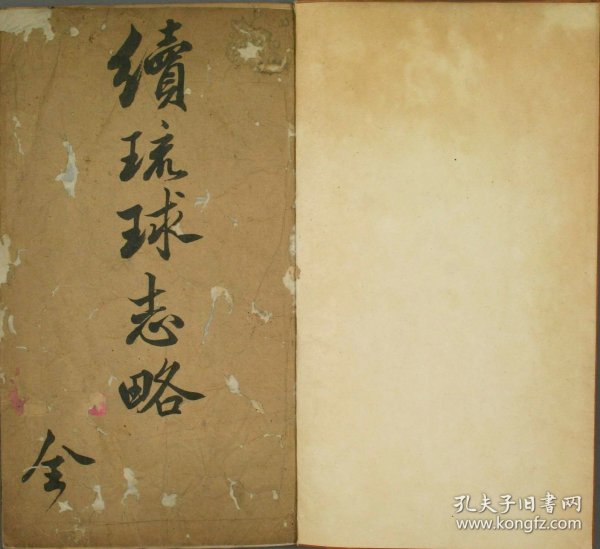 續琉球志略
全
孔夫子旧書网
www.kongfz.com